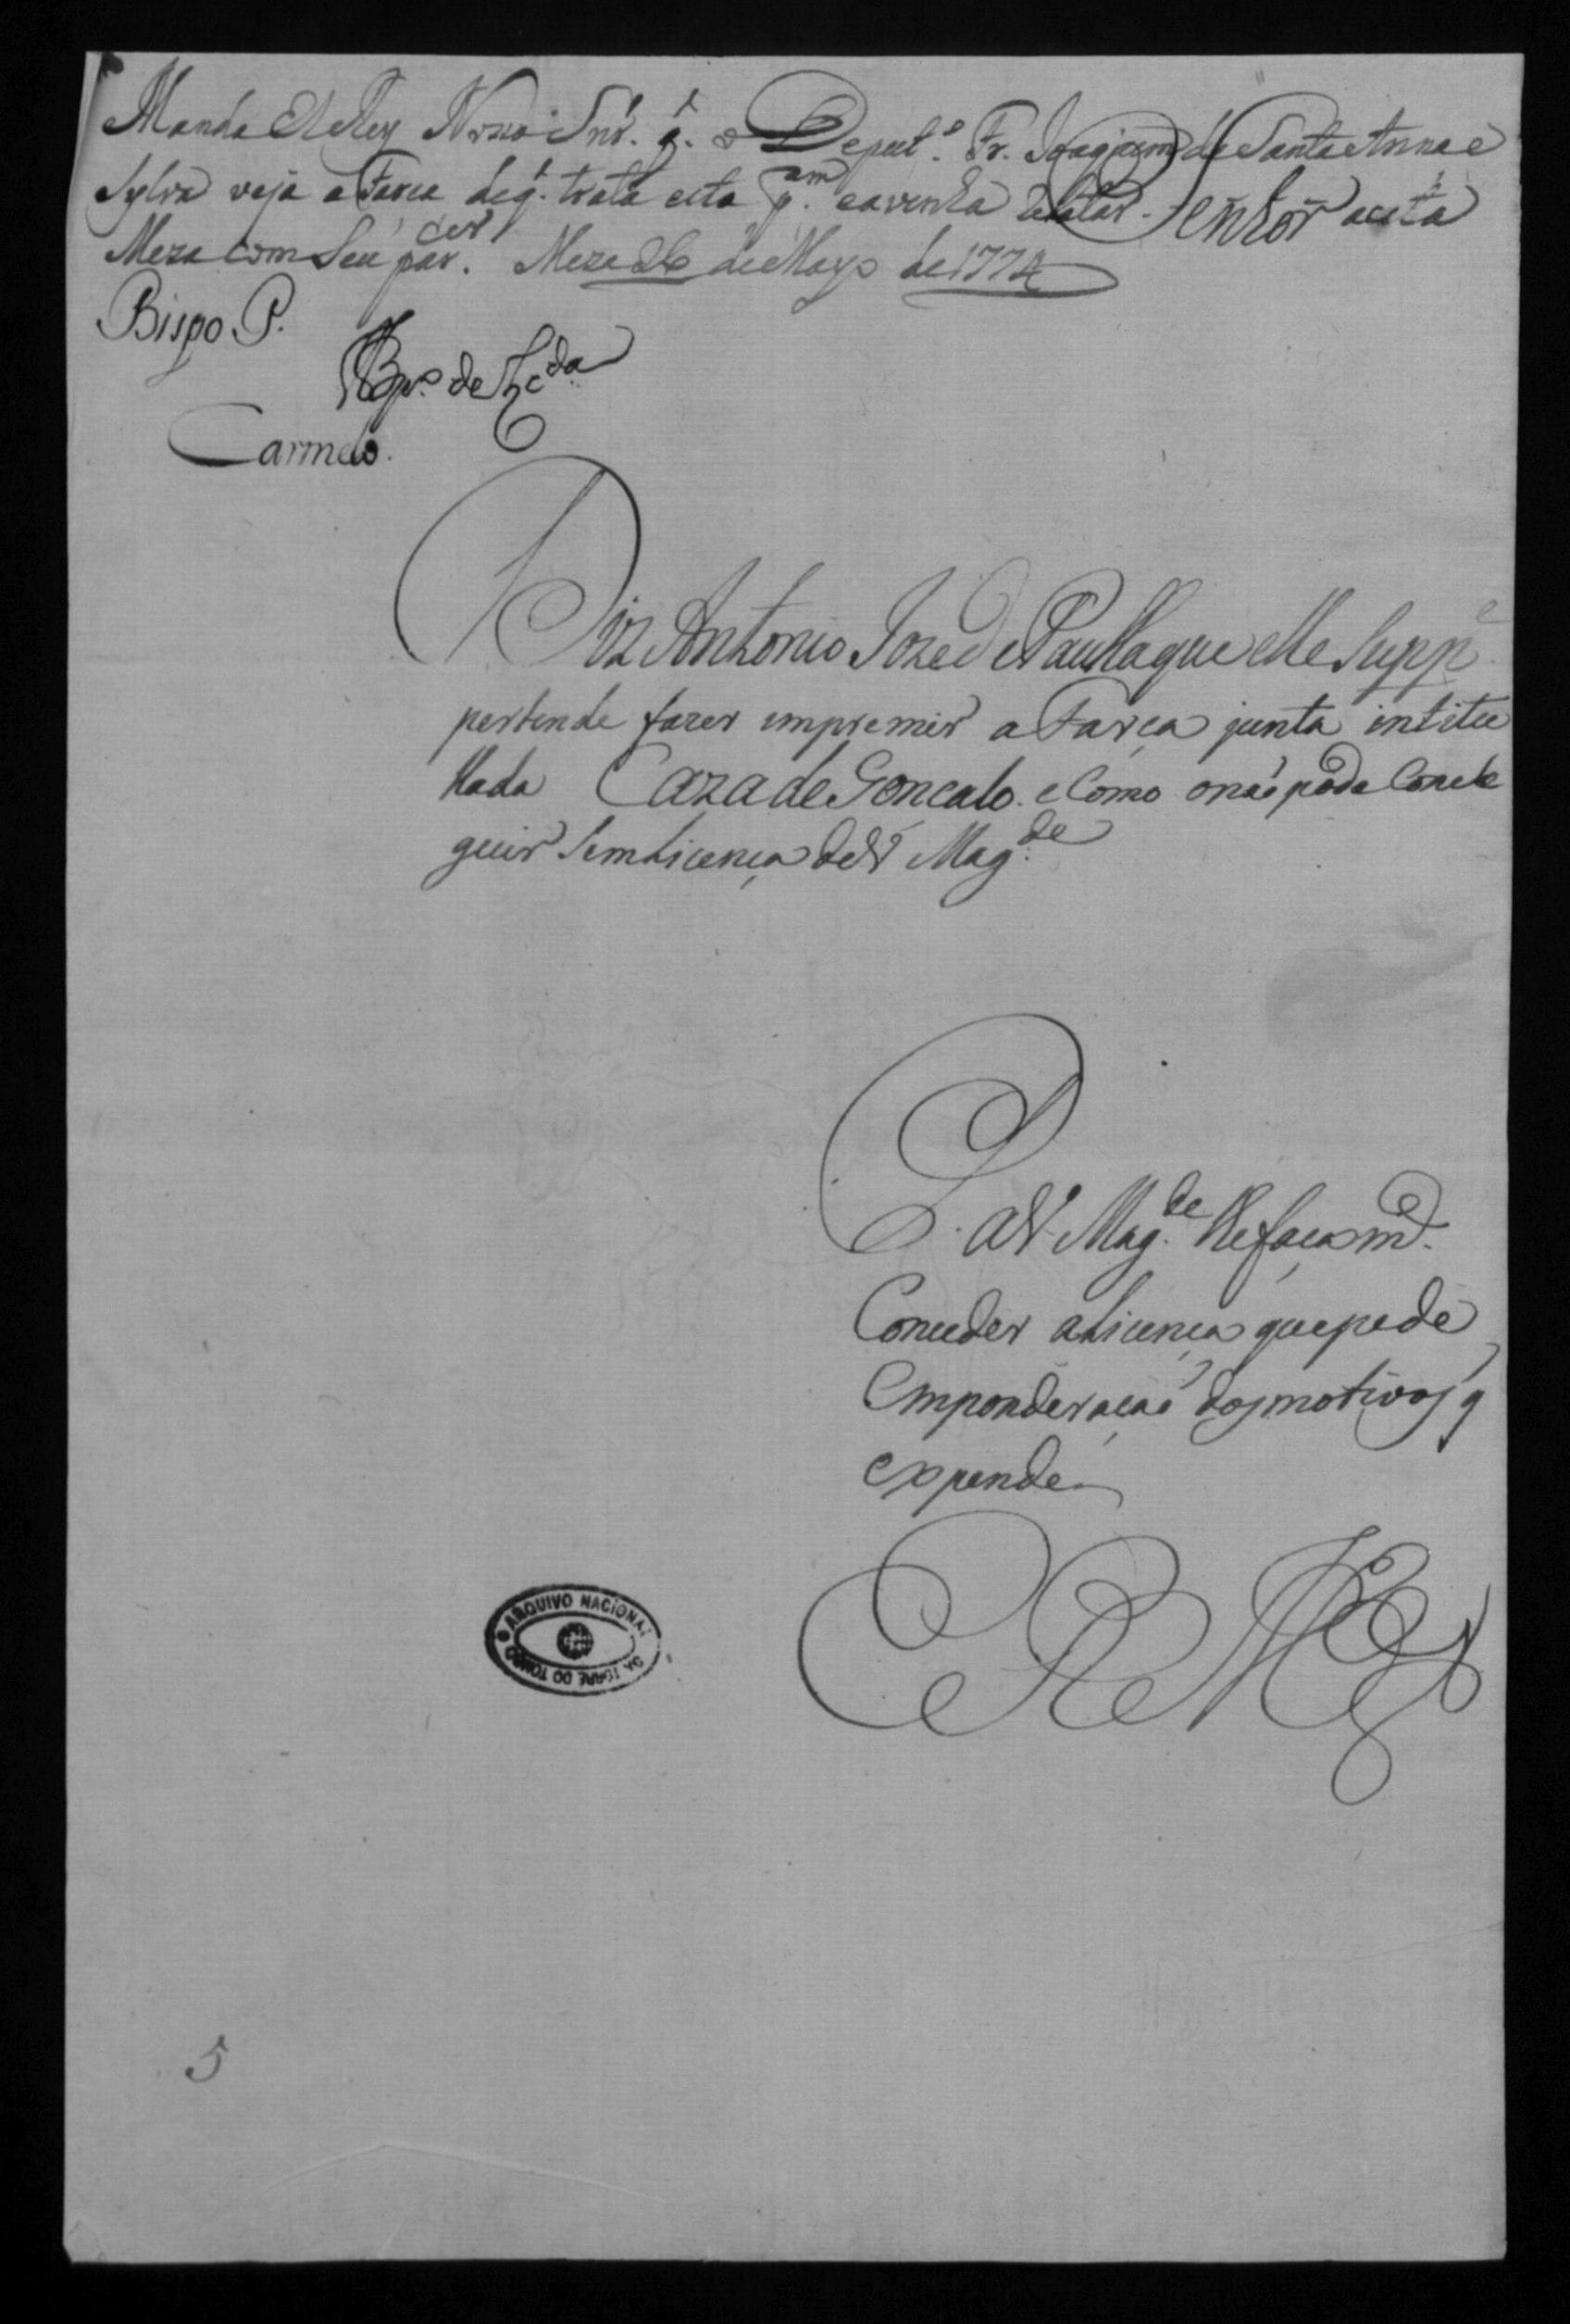 Manda ElRey Nosso Snr. q. o Deput.º Fr. Joaquim de Santa Anna e
Sylva veja a Farça de q. trata esta p.am e a venha relatar. Senhor a esta
Meza com Seu par.cer Meza 26 de Mayo de 1774
Bispo P.
Carmelo.
Diz Antonio Joze de Paulla que elle Supp.e
pertende fazer impremir a Farça junta intitu
llada Caza de Goncalo. e Como o naõ pode Conse
guir Sem Licença de V Mag.de
P. a V Mag.de lhe faça m.
Conceder a Licença que pede
Em ponderaçaõ dos motivos q
expende
E R M
ARQUIVO NACIONAL
DA TORRE DO TOMBO
5